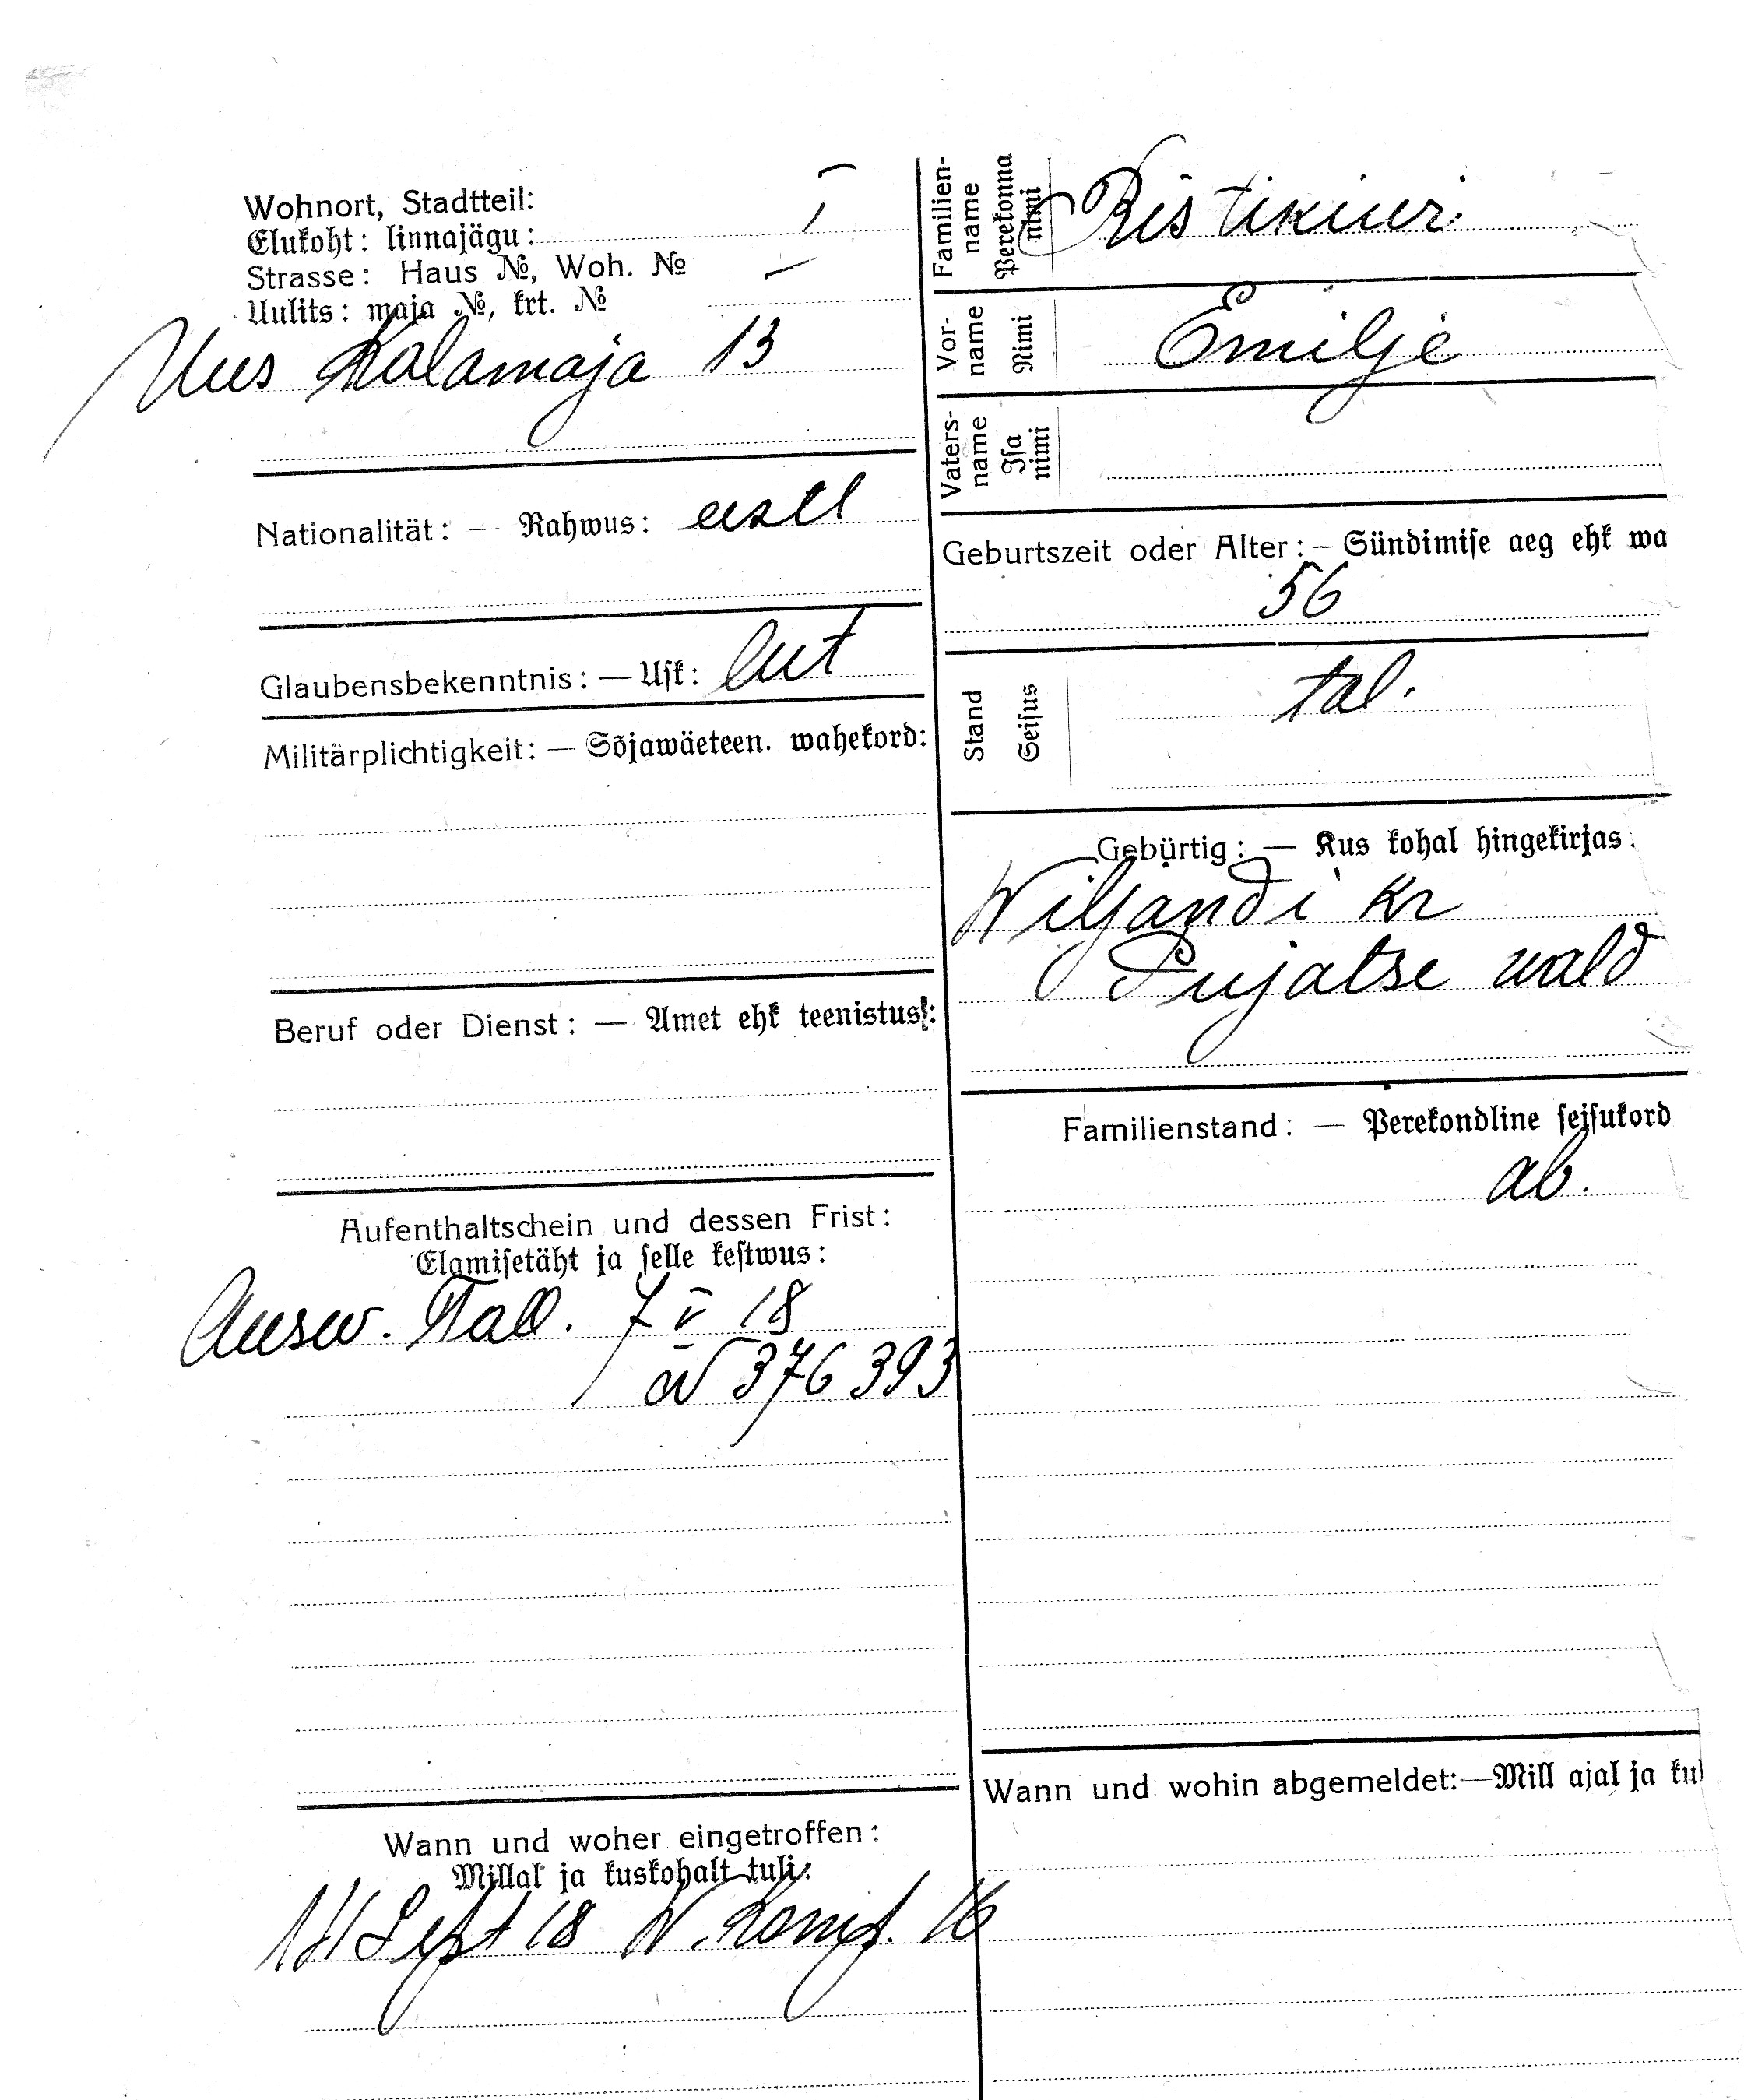 Wohnort, Stadtteil:
Elukoht: linnajägu: I
Strasse: Haus №, Woh. №
Uulits: maja №, krt. №
Uus Kalamaja 13
Nationalität: — Rahwus: eestl
Glaubensbekenntnis: — Usk: lut
Militärplichtigkeit: — Sõjawäeteen. wahekord:
Beruf oder Dienst: — Amet ehk teenistus:
Aufenthaltschein und dessen Frist:
Elamisetäht ja selle kestwus:
Ausw. Tall. 7 V 18
№ 376 393
Wann und woher eingetroffen:
Millal ja kuskohalt tuli:
Sept 18 W. 16
Familien-
name
Perekonna
nimi
Vor-
name
Nimi
Emilje
Vaters-
name
Isa
nimi
Geburtszeit oder Alter: — Sündimise aeg ehk wa
56
Stand
Seisus
tal.
Gebürtig: — Kus kohal hingekirjas:
Wiljandi kr
Pujatse wald
Familienstand: — Perekondline seisukord
ab.
Wann und wohin abgemeldet: — Mill ajal ja ku